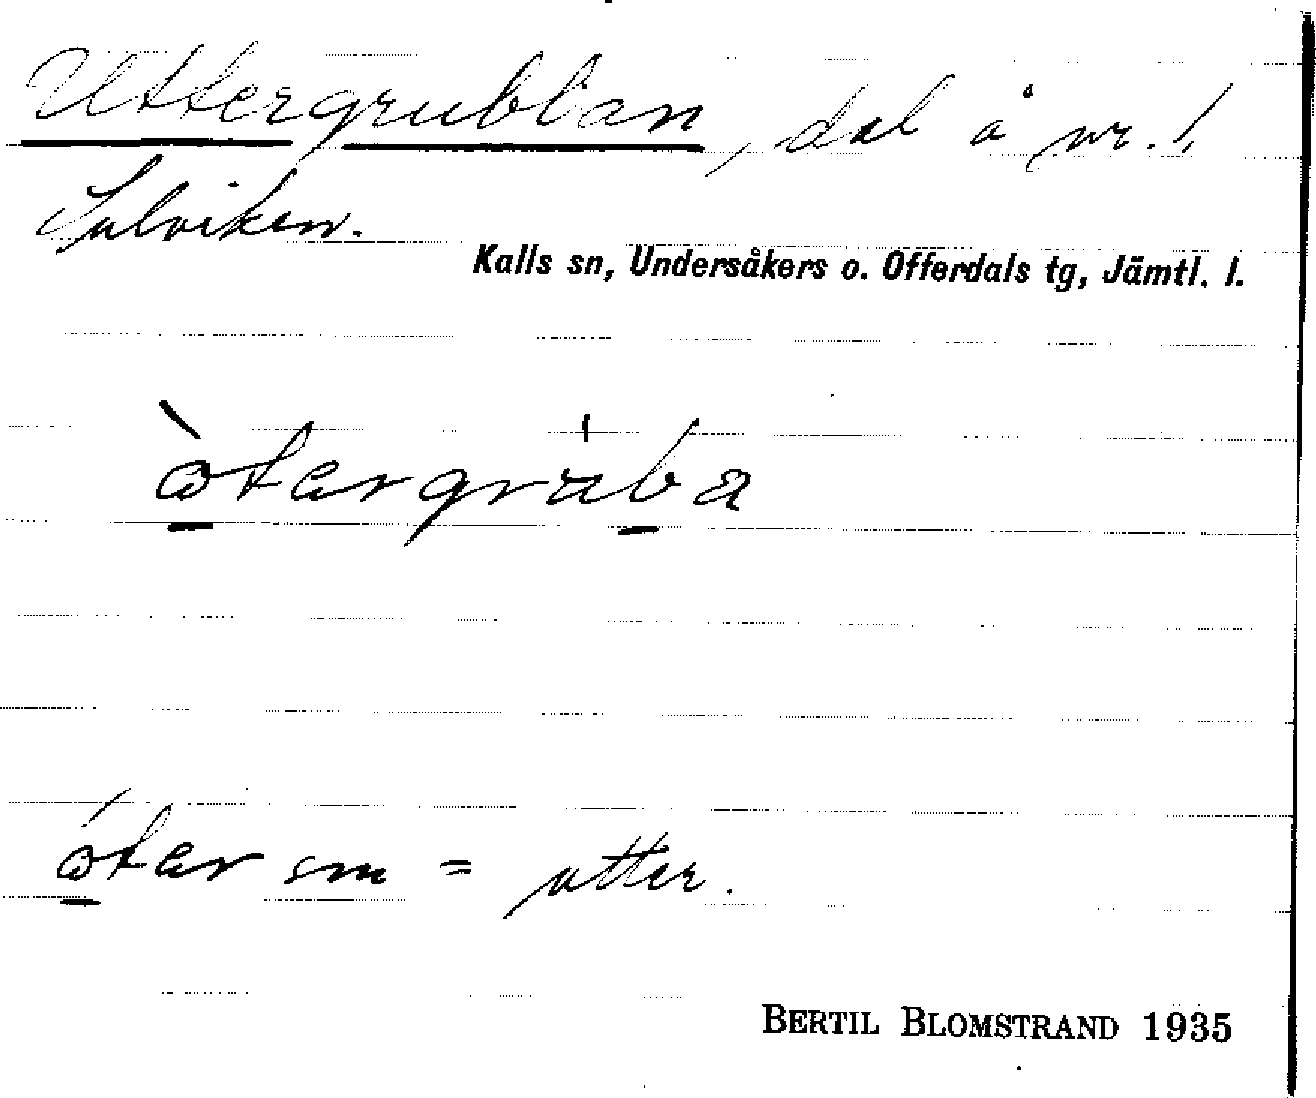 Uttergrubban, dal å nr. 1
Sulviken.
Kalls sn, Undersåkers o. Offerdals tg, Jämtl. l.
òtergruba
óter sm = utter.
BERTIL BLOMSTRAND 1935